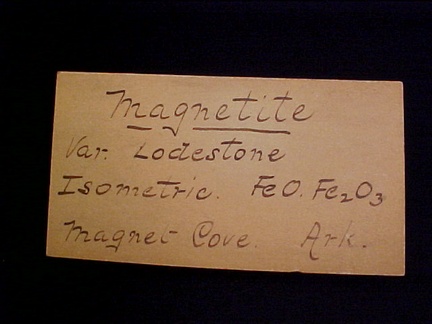 Magnetite
Var. Lodestone
Isometric. FeO. Fe₂O₃
Magnet Cove. Ark.